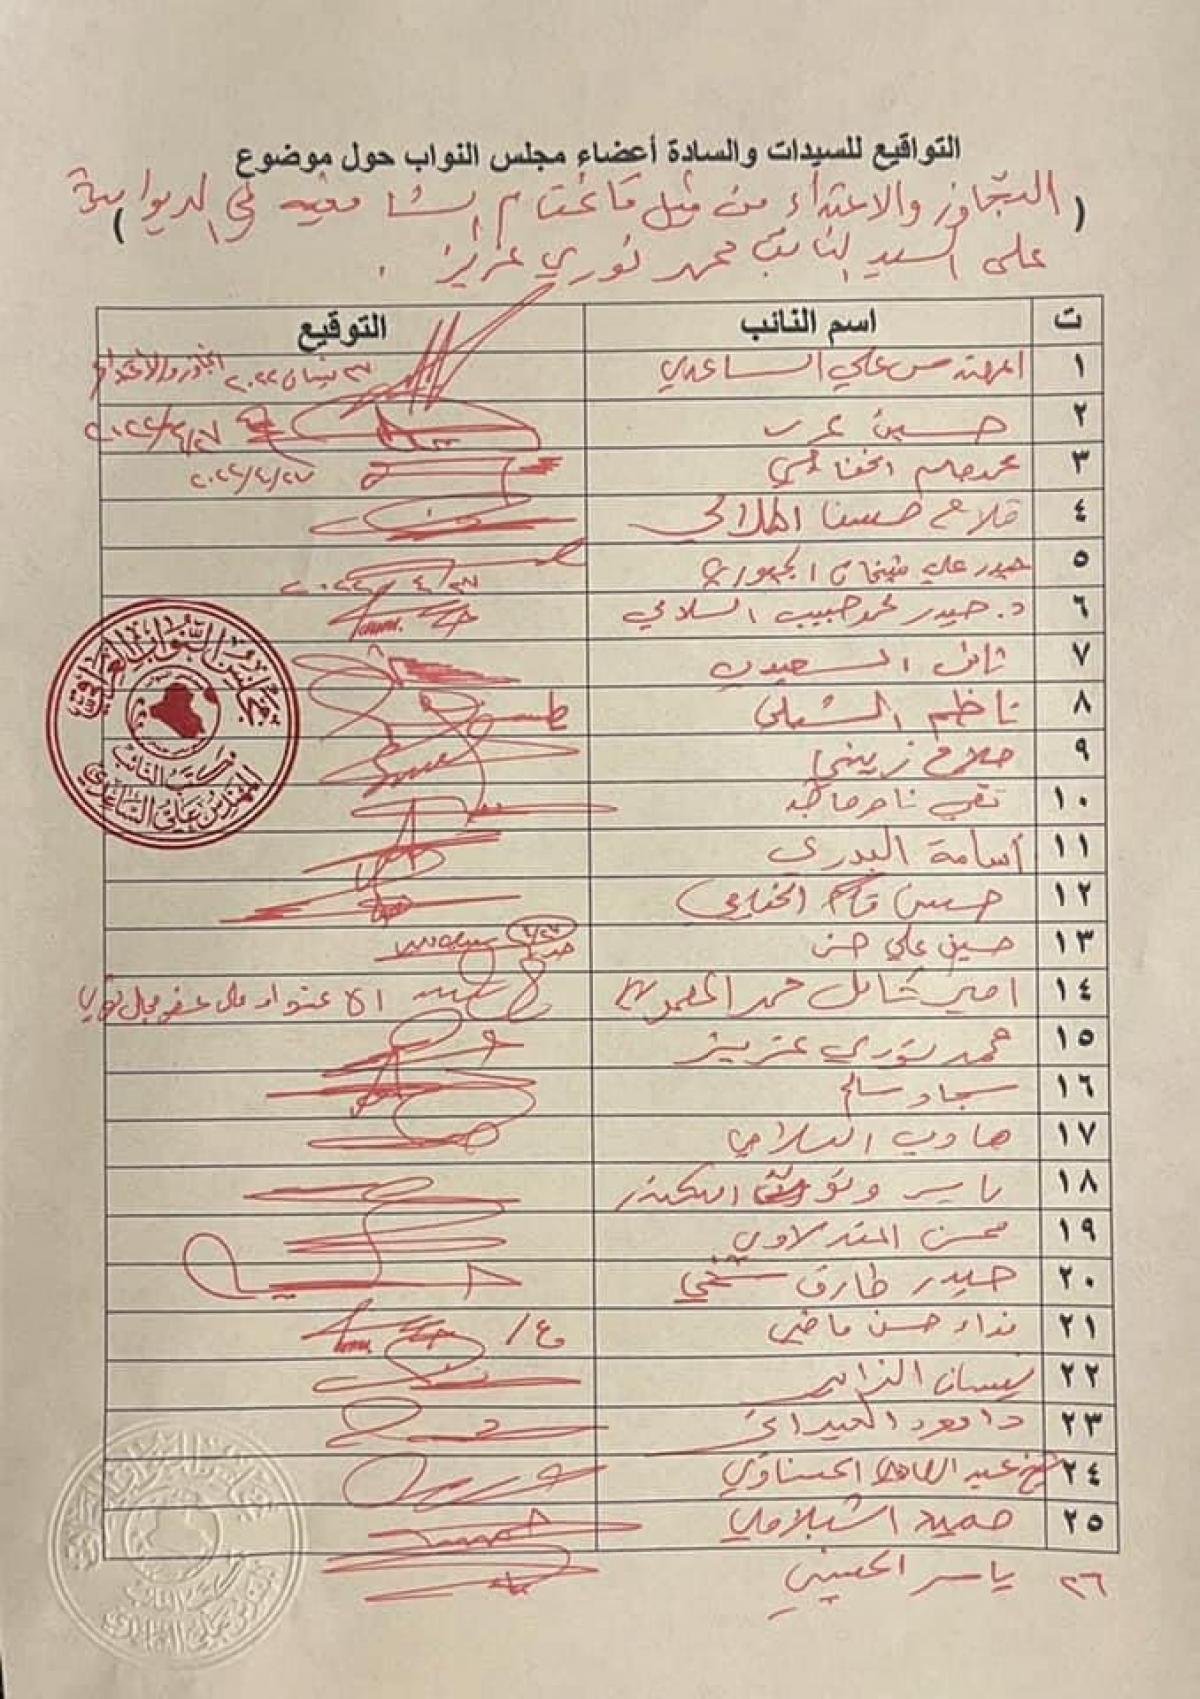 التواقيع للسيدات والسادة أعضاء مجلس النواب حول موضوع
( التجاوز والاعتداء من قبل قائمقام الشامية في الديوانية
على السيد النائب محمد نوري عزيز . )
ت اسم النائب التوقيع
١ المهندس علي الساعدي ٢٧ نيسان ٢٠٢٢ التجاوز والاعتداء
٢ حسين عرب ٢٠٢٢/٤/٢٧
٣ محمد جاسم الخفاجي ٢٠٢٢/٤/٢٧
٤ فلاح حسن الهلالي
٥ حيدر علي شيخان الجبوري ٢٠٢٢/٤/٢٧
٦ د. حيدر محمد حبيب السلامي
٧ السعيدي
٨ ناظم الشبلي
٩ صلاح زيني
١٠ تقي ناصر
١١ أسامة البدري
١٢ حسين قاسم الخفاجي
١٣ حسين علي حسن
١٤ امير كامل
١٥ محمد نوري عزيز
١٦ سجاد سالم
١٧ هادي السلامي
١٨ ياسر
١٩ محسن المندلاوي
٢٠ حيدر طارق
٢١ نداء حسن ماضي
٢٢ نيسان الزاير
٢٣ داود العيداني
٢٤ عبد الهادي الحسناوي
٢٥ حميد الشبلاوي
٢٦ ياسر الحسيني
مجلس النواب العراقي
مكتب النائب
المهندس علي الساعدي